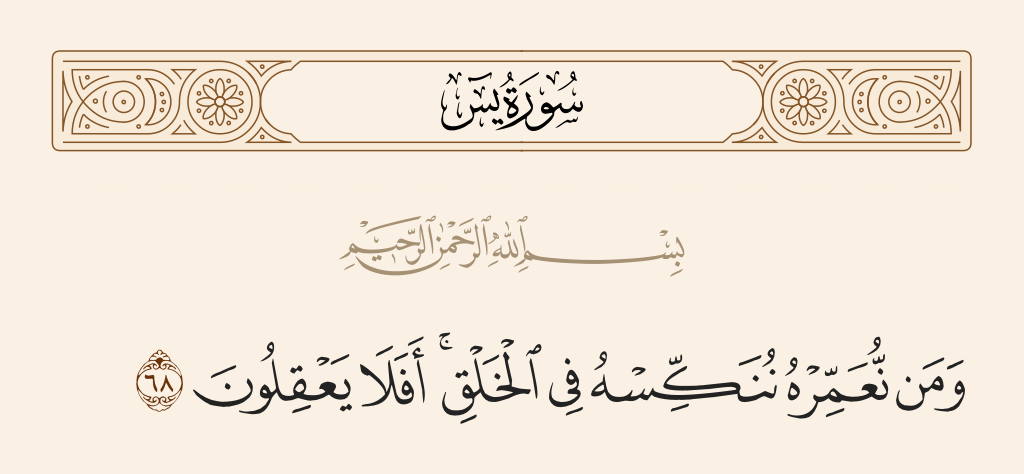 سُورَةُ يسٓ
بِسْمِ ٱللَّهِ ٱلرَّحْمَٰنِ ٱلرَّحِيمِ
وَمَن نُّعَمِّرْهُ نُنَكِّسْهُ فِى ٱلْخَلْقِ ۚ أَفَلَا يَعْقِلُونَ ٦٨